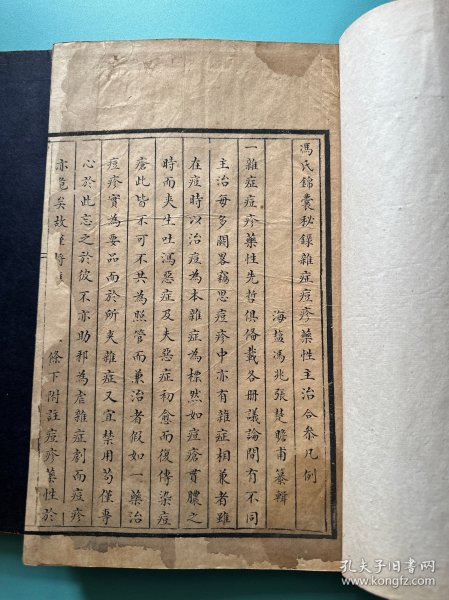 馮氏錦囊秘錄雜症痘疹藥性主治合參凡例
海鹽馮兆張楚瞻甫纂輯
一雜症痘疹藥性先哲俱俻載各册議論間有不同
主治每多闕畧竊思痘疹中亦有雜症相兼者雖
在痘時以治痘為本雜症為標然如痘瘡貫膿之
時而夾生吐瀉惡症及夫惡症初愈而復傳染痘
瘡此皆不可不共為照管而兼治者假如一藥治
痘疹實為妥品而於所夾雜症又宜禁用苟僅專
心於此忘之於彼不亦助邪為虐雜症劇而痘疹
亦危矣故
條下附註痘疹藥性於
孔夫子旧书网
www.kongfz.com